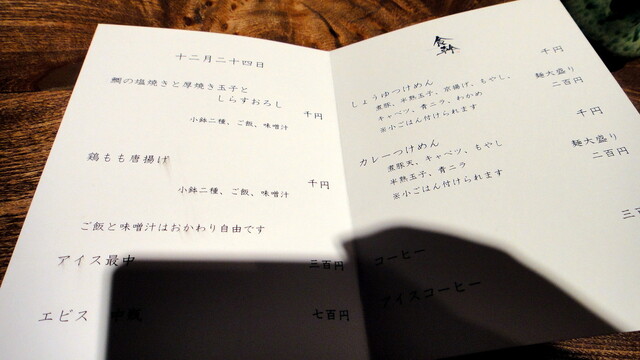 十二月二十四日
鯛の塩焼きと厚焼き玉子と
しらすおろし
千円
小鉢二種、ご飯、味噌汁
鶏もも唐揚げ
千円
小鉢二種、ご飯、味噌汁
ご飯と味噌汁はおかわり自由です
アイス最中
三百円
エビス 中瓶
七百円
食幹
しょうゆつけめん
千円
煮豚、半熟玉子、京揚げ、もやし、
キャベツ、青ニラ、わかめ
麺大盛り
二百円
※小ごはん付けられます
カレーつけめん
千円
煮豚天、キャベツ、もやし
半熟玉子、青ニラ
麺大盛り
二百円
※小ごはん付けられます
コーヒー
三百
アイスコーヒー